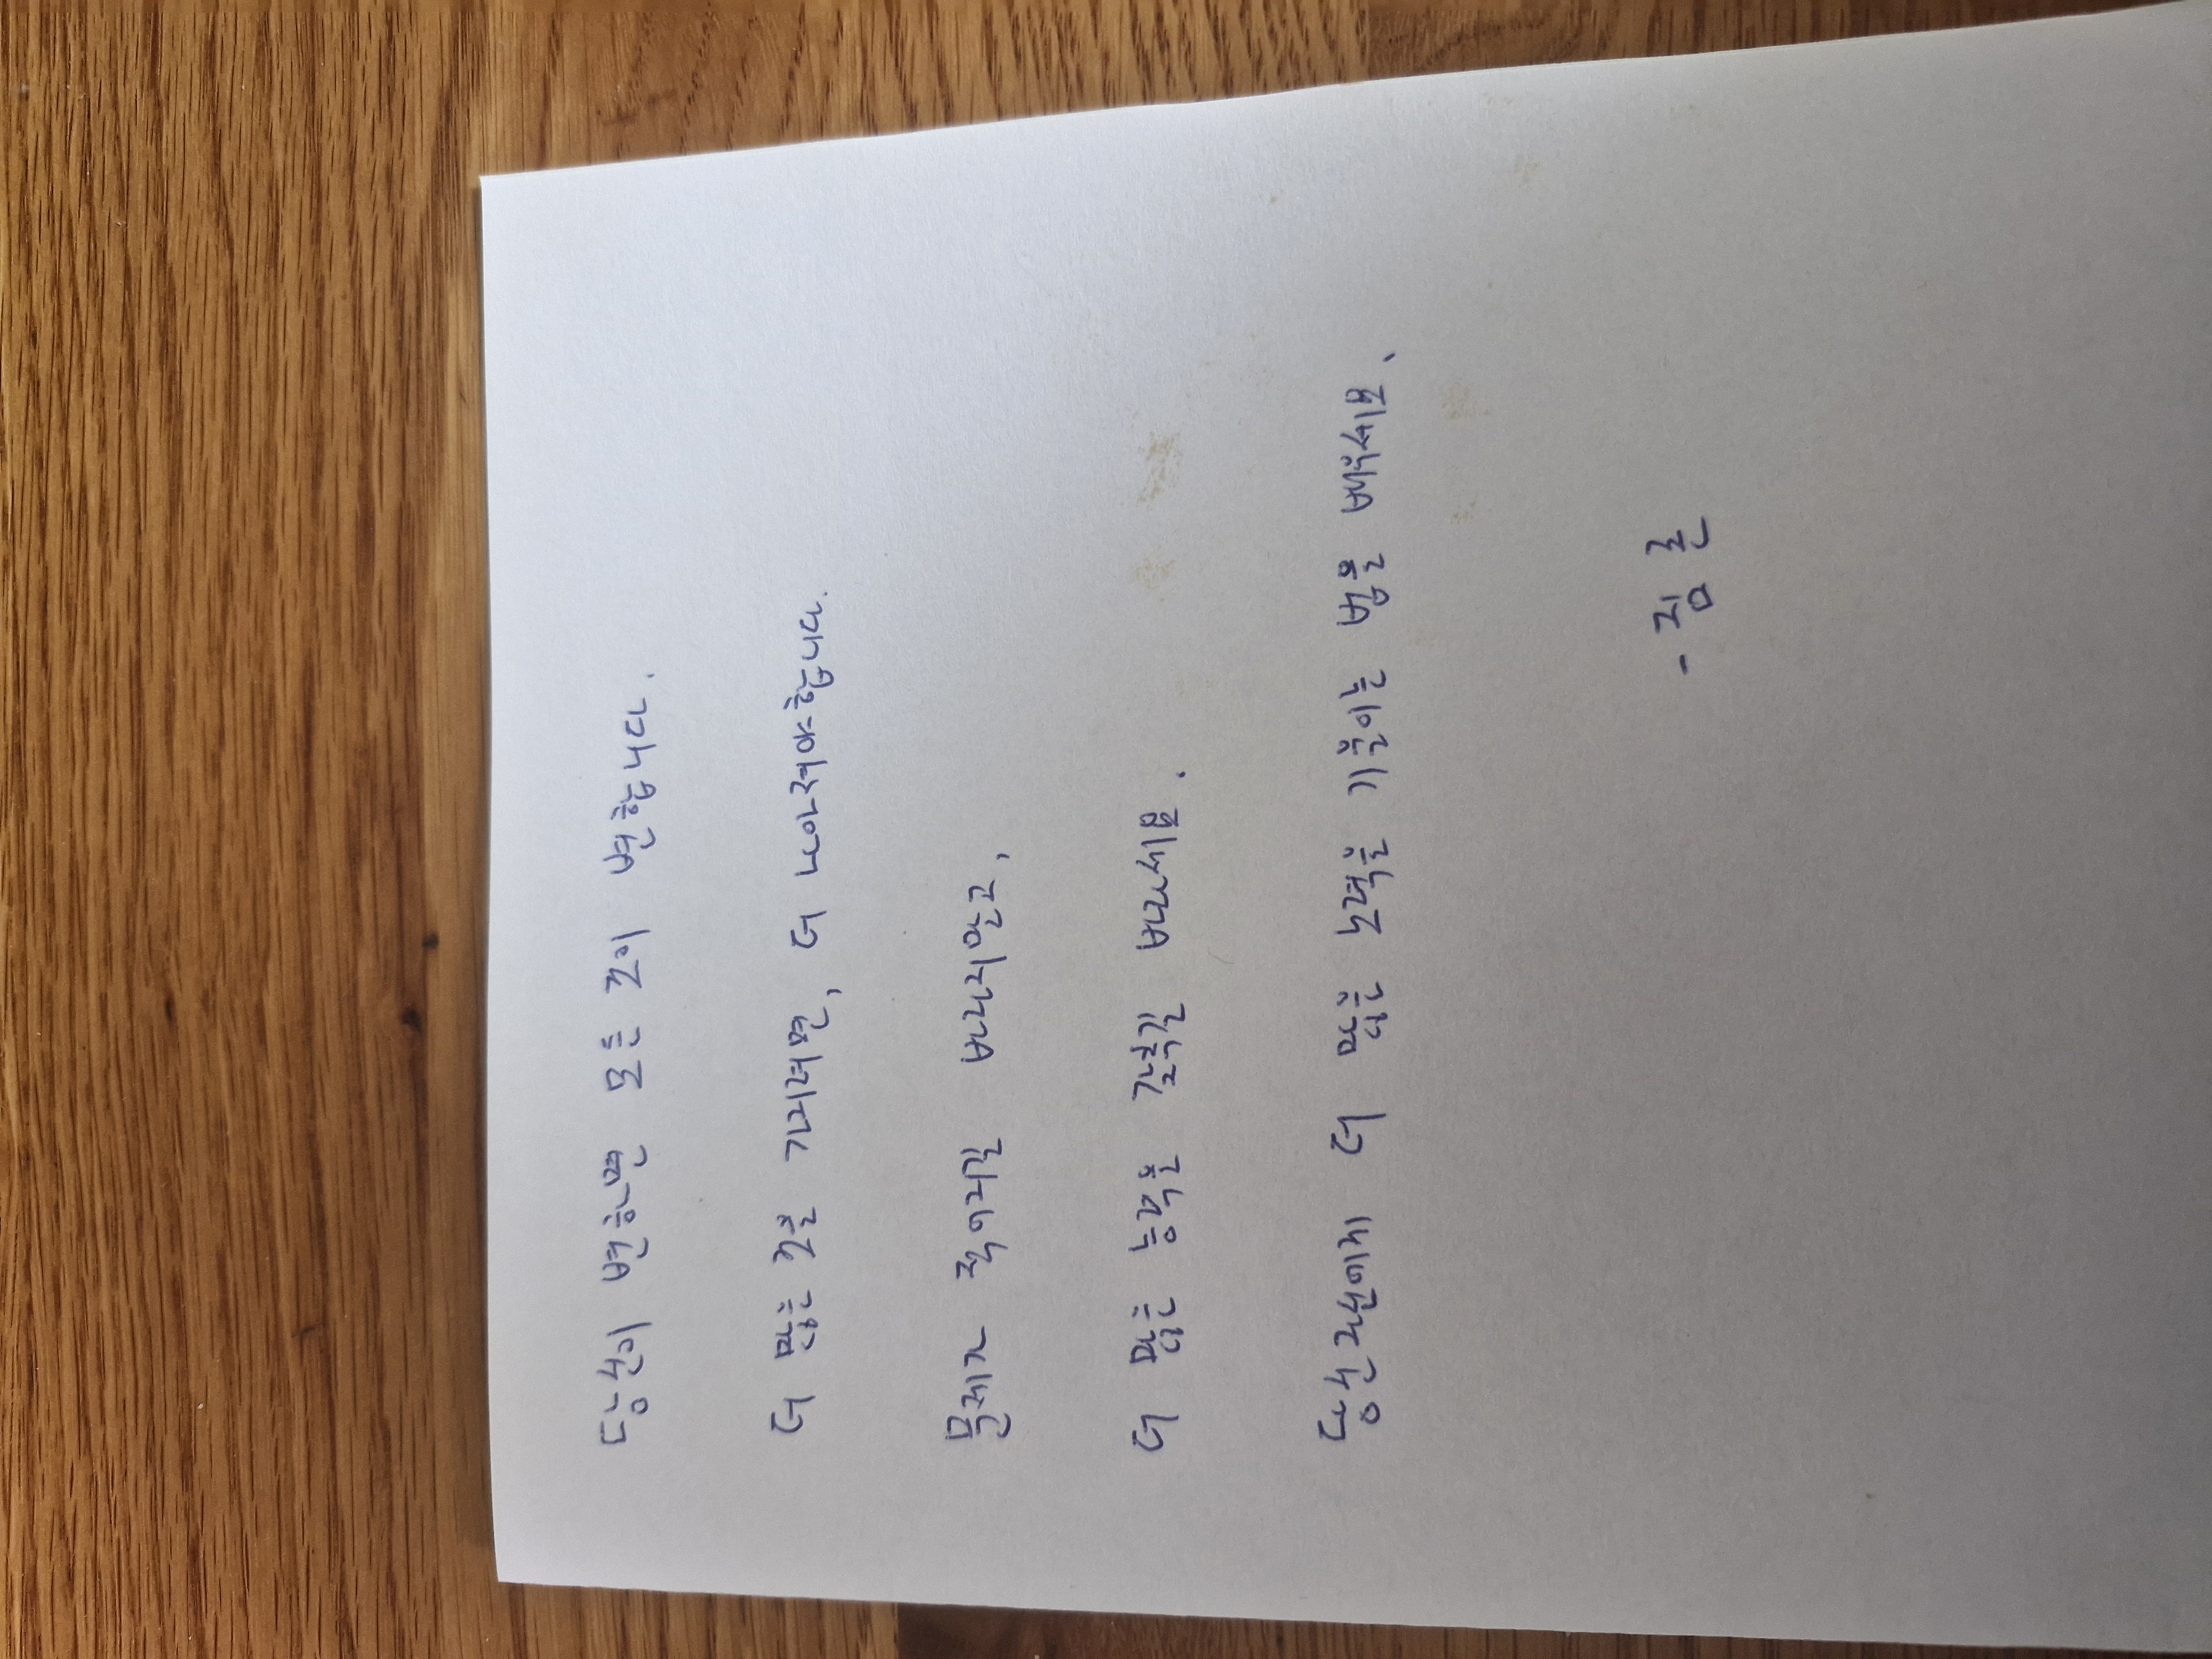 당신이 변하면 모든 것이 변합니다.
더 많은 것을 가지려면, 더 나아져야합니다.
문제가 적어지길 바라지말고,
더 많은 능력을 갖추길 바라세요.
당신 자신에게 더 많은 노력을 기울이는 법을 배우세요.
- 짐 론